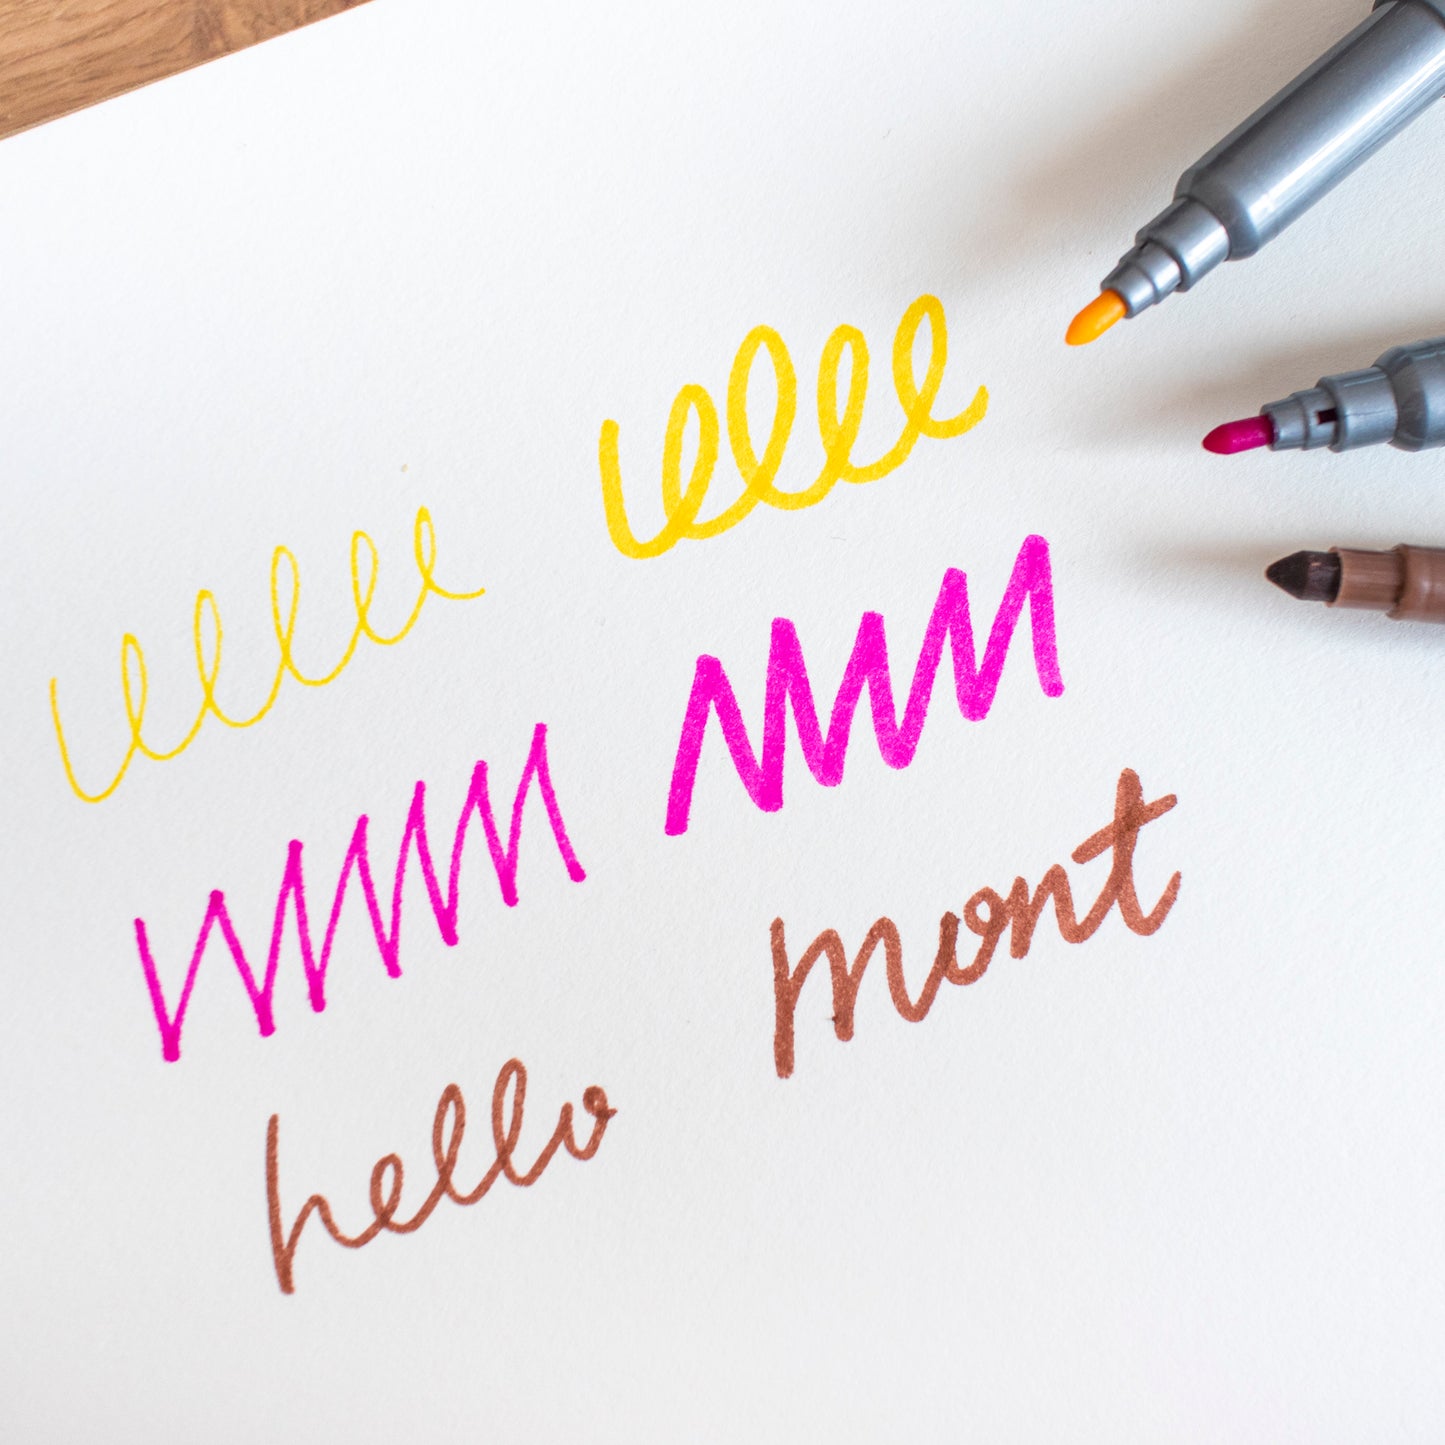 hello mont